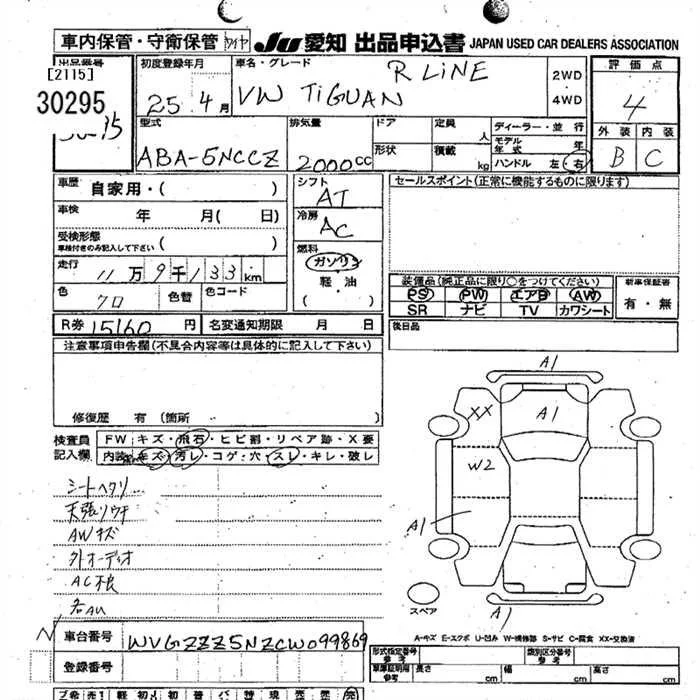 車内保管・守衛保管 ワイヤ JU 愛知 出品申込書 JAPAN USED CAR DEALERS ASSOCIATION
出品番号 初度登録年月 車名・グレード 評価点
[2115] R LINE 2WD
30295 25年 4月 VW TIGUAN 4WD 4
型式 排気量 ドア 定員 人 ディーラー・並行 外装 内装
ABA-5NCCZ 2000cc 形状 積載 kg モデル年式 年 B C
ハンドル 左・右
車歴 自家用・( ) シフト AT セールスポイント(正常に機能するものに限ります)
車検 年 月( 日) 冷房 AC
受検形態
車検付きのみ記入して下さい ( ) 燃料
ガソリン
走行 11万9千133km 軽・油
( ・ )
装備品(純正品に限り○をつけてください) 新車保証書
PS PW エアB AW 有・無
SR ナビ TV カワシート
色 クロ 色替 色コード
R券 15160円 名変通知期限 月 日 後日品
注意事項申告欄(不具合内容等は具体的に記入して下さい)
修復歴 有(箇所 )
検査員 FW キズ・飛石・ヒビ割・リペア跡・X要
記入欄 内装 キズ・汚レ・コゲ・穴・スレ・キレ・破レ
シートヘタリ
天張リウキ
AWキズ
外オーディオ
AC不良
A1
XX A1
W2
A1
スペア A1
A-キズ E-エクボ U-凹み W-補修跡 S-サビ C-腐食 XX-交換済
車台番号 WVGZZZ5NZCW099869
登録番号
形式指定番号 参考 類別区分番号 参考
車庫証明用 参考 長さ cm 幅 cm 高さ cm